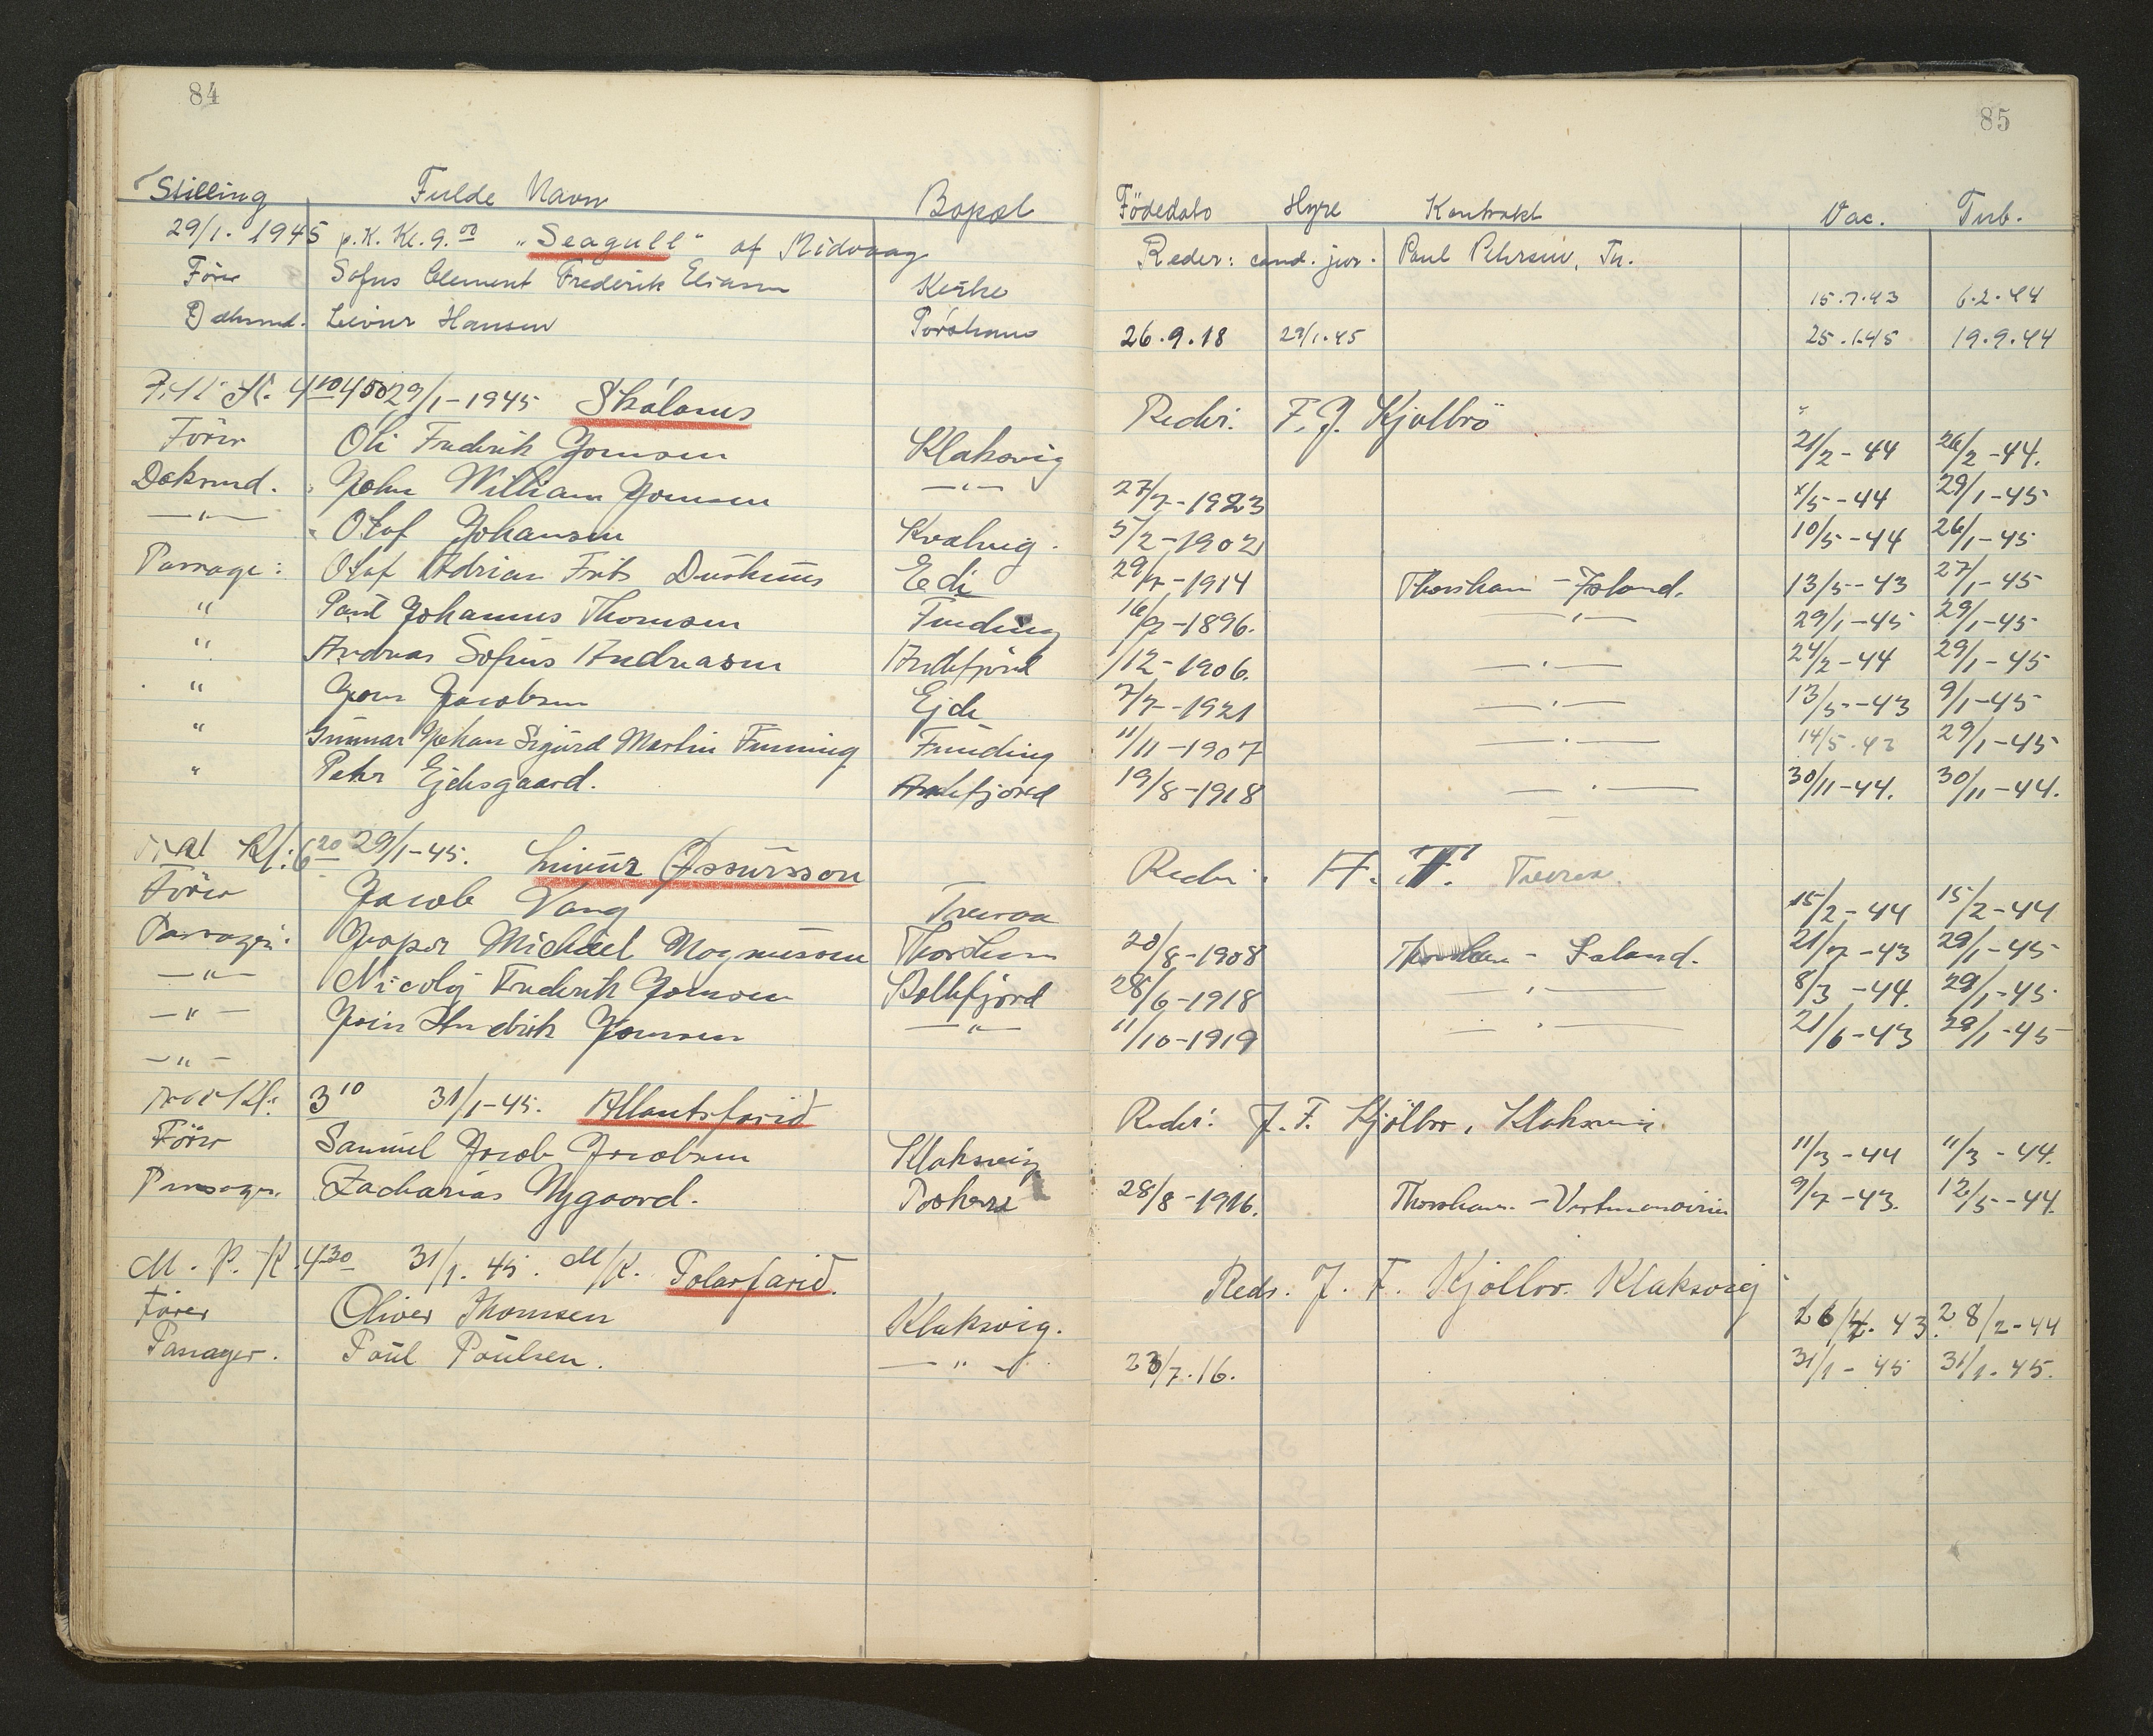 84
Stilling Fulde Navn Bopæl
29/1. 1945 p.K. Kl. 9.00 "Seagull" af Midvaag
Förer Sofus Clement Frederik Eliasen Kirke
Livur Hansen Tórshavn
Kl. 4 29/1-1945 Skálanes
Förer Oli Fredrik Joensen Klaksvig
Dæksmd. John William Joensen —"—
—"— Olaf Johansen Kvalvig.
Passage: Olaf Adrian Frits Edi
" Paul Johannus Thomsen Funding
" Andreas Sofus Andreasen Andefjord
" Joen Jacobsen Ejde
" Gunnar Johan Sigurd Martin Funning Funding
" Peter Ejdesgaard. Andefjord
Kl: 6 20 29/1-45. Livur Øssursson
Förer Jacob Vang Tveraa
Passager: Jasper Michael Magnussen Thorshavn
—"— Nicolaj Fredrik Joensen Kollefjord
—"— Hendrik Joensen —"—
—"—
Kl: 3 10 31/1-45. Atlantsfarid
Förer Samuel Jacob Jacobsen Klaksvig
Passager. Zacharias Nygaard.
M. P. K. 4 30 31/1. 45. M/K. Polarfarid.
Förer Oliver Thomsen Klaksvig.
Passager. Paul Poulsen. —"—
85
Födedato Hyre Kontrakt Vac. Tub.
Reder: cand. jur. Paul Petersen, Th.
15.7.43 6.2.44
26.9.18 29/1.45 25.1.45 19.9.44
Reder: F. J. Kjølbrö
21/2-44 26/2-44.
27/7-1923 1/5-44 29/1-45
5/2-1902 10/5-44 26/1-45
29/7-1914 Thorshavn - Island. 13/5-43 27/1-45
16/9-1896. —"— 29/1-45 29/1-45
1/12-1906. —"— 24/2-44 29/1-45
7/7-1921 —"— 13/5-43 9/1-45
11/11-1907 —"— 14/5.43 29/1-45
19/8-1918 —"— 30/11-44. 30/11-44.
Reder: Tveraa.
15/2-44 15/2-44
20/8-1908 Thorshavn - Island. 21/7-43 29/1-45
28/6-1918 —"— 8/3-44. 29/1-45
11/10-1919 —"— 21/6-43 29/1-45
Reder: J. F. Kjölbro, Klaksvig.
11/3-44 11/3-44.
28/8-1916. Thorshavn - 9/7-43. 12/5-44.
Reder. J. F. Kjølbro. Klaksvig
43. 28/2-44
23/7.16. 31/1-45 31/1-45.